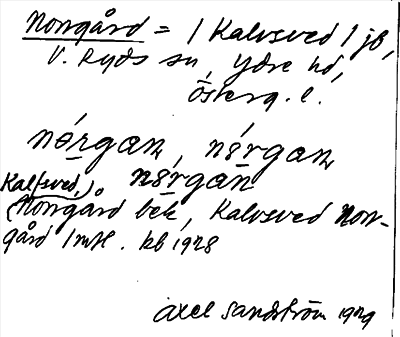 Norrgård = / Kalvsved / jb,
V. Ryds sn, Ydre hd,
Österg. l.
nørgan, nørgan,
Kalfsved, nørgan
(Norrgård bek, Kalvsved Norr-
gård 1 mtl. kb 1928
Axel Sandström 1929